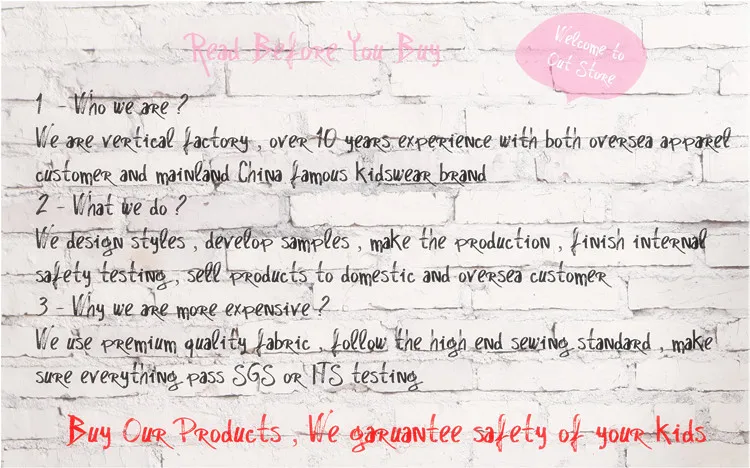 Read Before You Buy
Welcome to
Out Store
1 - Who we are ?
We are vertical factory , over 10 years experience with both oversea apparel
customer and mainland China famous kidswear brand
2 - What we do ?
We design styles , develop samples , make the production , finish internal
safety testing , sell products to domestic and oversea customer
3 - Why we are more expensive ?
We use premium quality fabric , follow the high end sewing standard , make
sure everything pass SGS or ITS testing
Buy Our Products , We garuantee safety of your kids